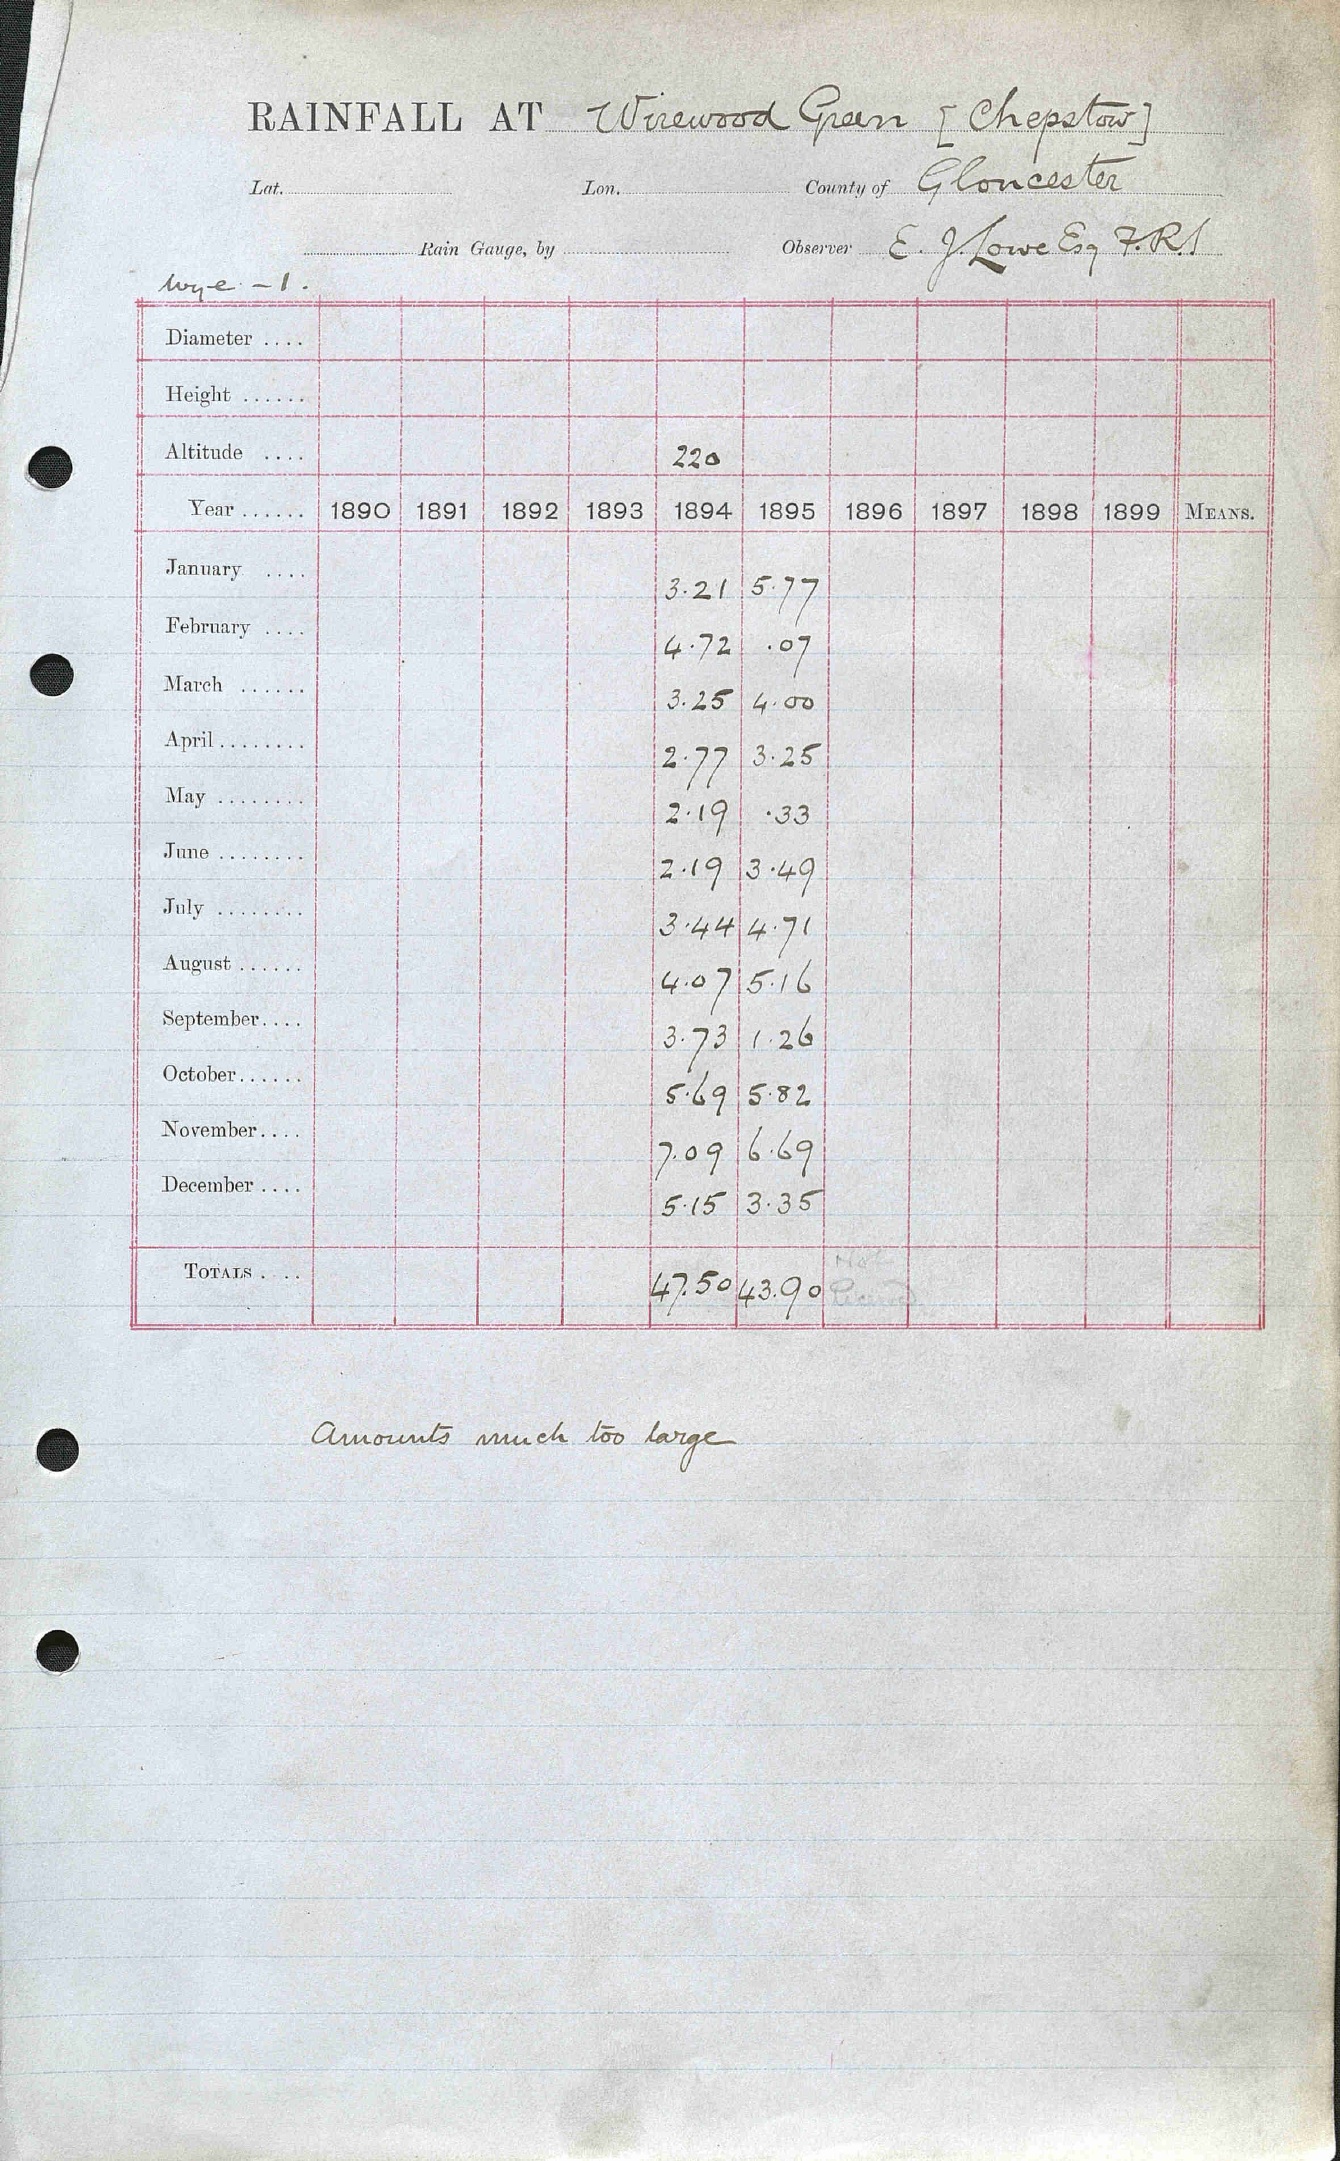 RAINFALL AT Wirewood Green [Chepstow]
Lat. Lon. County of Gloncester
Rain Gauge, by Observer E. J. Lowe Esq F.R.S
Wye - 1.
Diameter ....
Height ......
Altitude .... 220
Year ...... 1890 1891 1892 1893 1894 1895 1896 1897 1898 1899 MEANS.
January .... 3.21 5.77
February .... 4.72 .07
March ...... 3.25 4.00
April ........ 2.77 3.25
May ........ 2.19 .33
June ........ 2.19 3.49
July ........ 3.44 4.71
August ...... 4.07 5.16
September.... 3.73 1.26
October...... 5.69 5.82
November.... 7.09 6.69
December .... 5.15 3.35
TOTALS .... 47.50 43.90 Not
Received
Amounts much too large